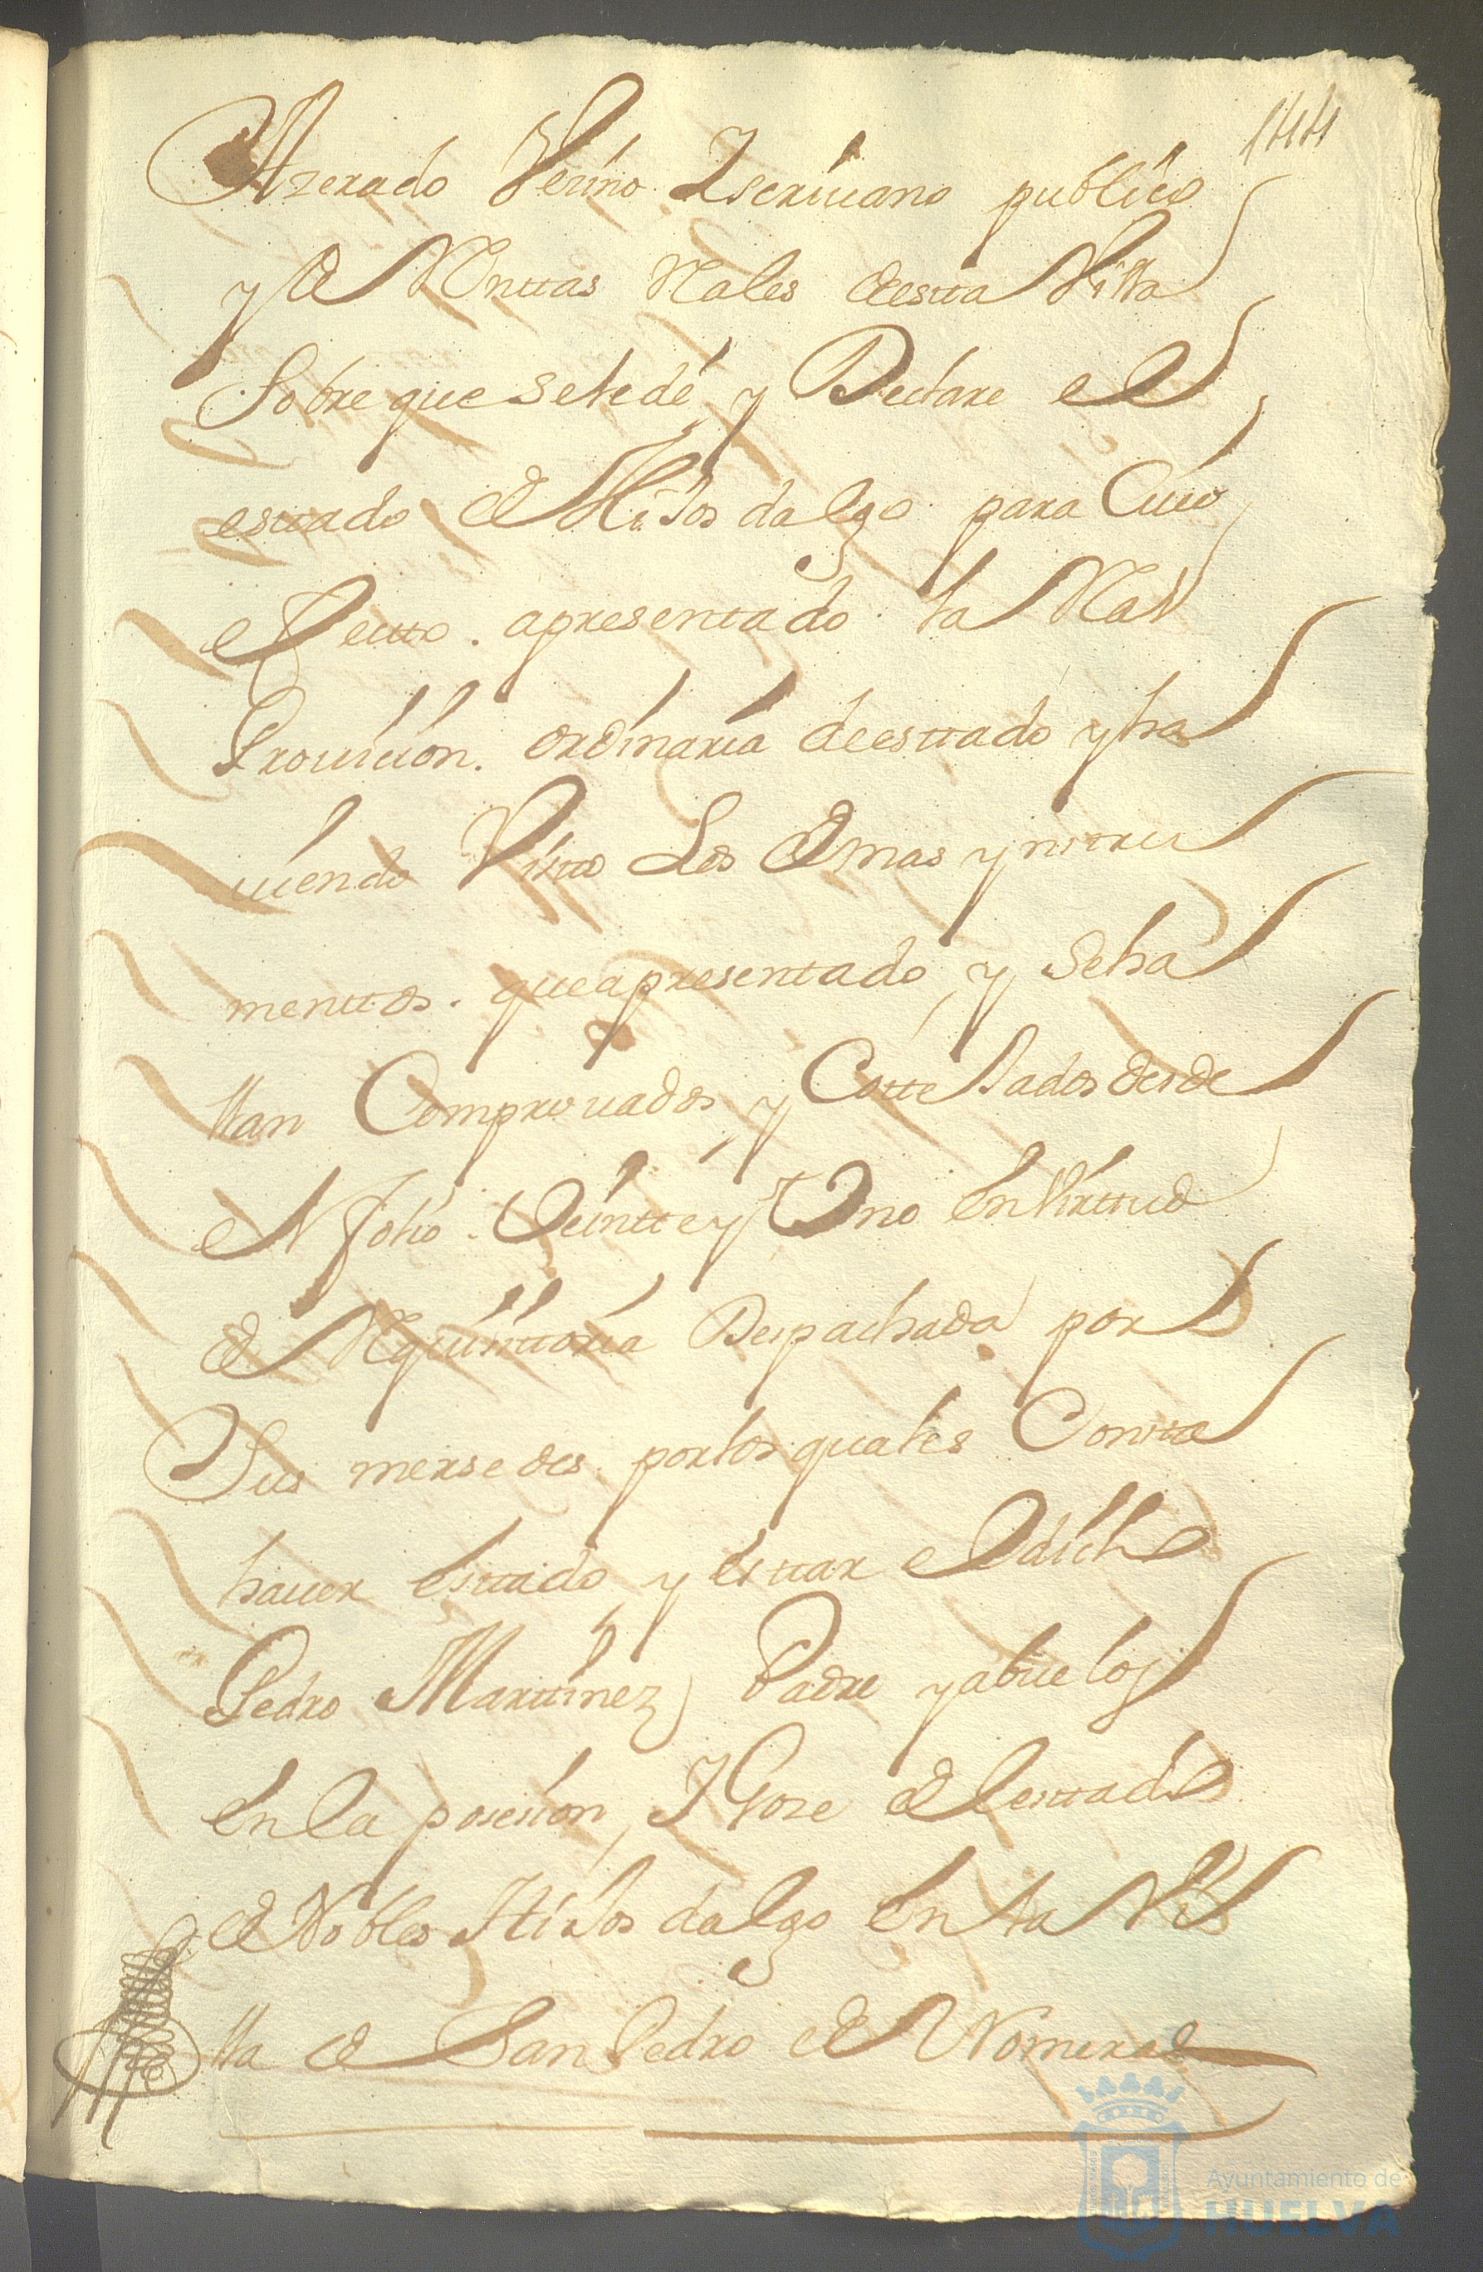 144
Azerado Vesino Escriuano publico
y de Renttas Rales deestta Villa
Sobre que se le dé y Declare el
esttado de Hijos dalgo para Cuio
efectto apresentado la Ral
Prouicion ordinaria de esttado y ha
uiendo Visto Los Demas ynstru
menttos que apresentado y se ha
llan Comprouados y Cottejados desde
el folio Veintte y Uno en Virttud
de Requisittoria Despachada por
Sus mersedes por los quales Consta
hauer Esttado y Esttar el dicho
Pedro Marttinez Padre y abuelos
en la posesion y Gose del esttado
de Nobles Hijos dalgo en la Vi
lla de San Pedro del Romeral
Ayuntamiento de
HUELVA